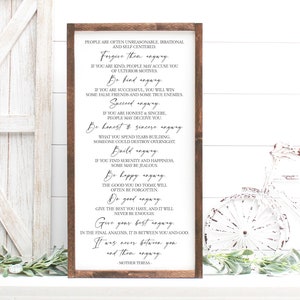 PEOPLE ARE OFTEN UNREASONABLE, IRRATIONAL
AND SELF-CENTERED.
Forgive them anyway.
IF YOU ARE KIND, PEOPLE MAY ACCUSE YOU
OF ULTERIOR MOTIVES.
Be kind anyway.
IF YOU ARE SUCCESSFUL, YOU WILL WIN
SOME FALSE FRIENDS AND SOME TRUE ENEMIES.
Succeed anyway.
IF YOU ARE HONEST & SINCERE,
PEOPLE MAY DECEIVE YOU.
Be honest & sincere anyway.
WHAT YOU SPEND YEARS BUILDING,
SOMEONE COULD DESTROY OVERNIGHT.
Build anyway.
IF YOU FIND SERENITY AND HAPPINESS,
SOME MAY BE JEALOUS.
Be happy anyway.
THE GOOD YOU DO TODAY, WILL
OFTEN BE FORGOTTEN.
Be good anyway.
GIVE THE BEST YOU HAVE, AND IT WILL
NEVER BE ENOUGH.
Give your best anyway.
IN THE FINAL ANALYSIS, IT IS BETWEEN YOU AND GOD.
It was never between you
and them anyway.
-MOTHER TERESA-